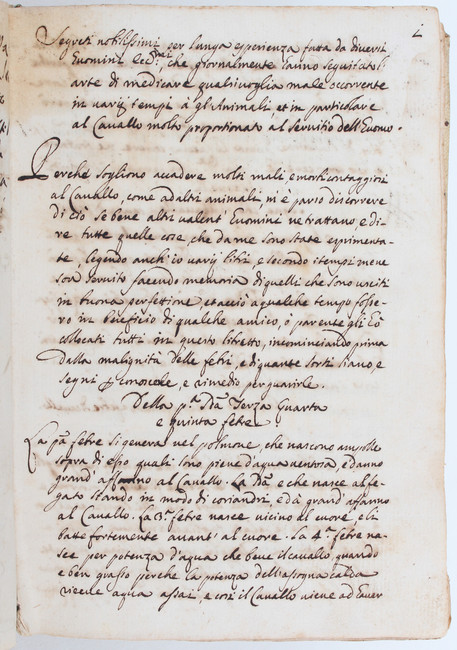 1
Segreti nobilissimi per lunga esperienza fatta da diversi
Huomini Ecc.mi che giornalmente hanno seguitato l'
arte di medicare qualsivoglia male occorrente
in varij tempi à gl'Animali, et in particolare
al Cavallo molto proportionato al servitio dell'Huomo.
Perche sogliono accadere molti mali, e morti contaggiori
al Cavallo, come ad altri animali, m'è parso discorrere
di ciò se bene altri valent'Huomini ne trattano, e di-
re tutte quelle cose, che da me sono state esprimenta-
te, leggendo anch'io varij libri, e secondo i tempi me ne
son servito facendo memoria di quelli che sono usciti
in buona perfettione et acciò a qualche tempo fosse-
ro in beneficio di qualche amico, ò parente gli hò
collocati tutti in questo libretto, incominciando prima
dalla malignità delle febri, e di quante sorti siano, e
segni p conoscerle, e rimedio per guarirle.
Della p.a 2da Terza Quarta
e Quinta febre
La p.a febre si genera nel polmone, che nascono ampolle
sopra di esso quali sono piene d'acqua ventosa, e danno
grand'affanno al Cavallo. La 2da e che nasce al fe-
gato stando in modo di coriandri, e dà grand'affanno
al Cavallo. La 3.a febre nasce vicino al cuore, e li
batte fortemente avant'al cuore. La 4.a febre na-
sce per potenza d'acqua che beve il cavallo, quando
e ben grasso perche la potenza della sogna calda
riceve acqua assai, e così il Cavallo viene ad haver